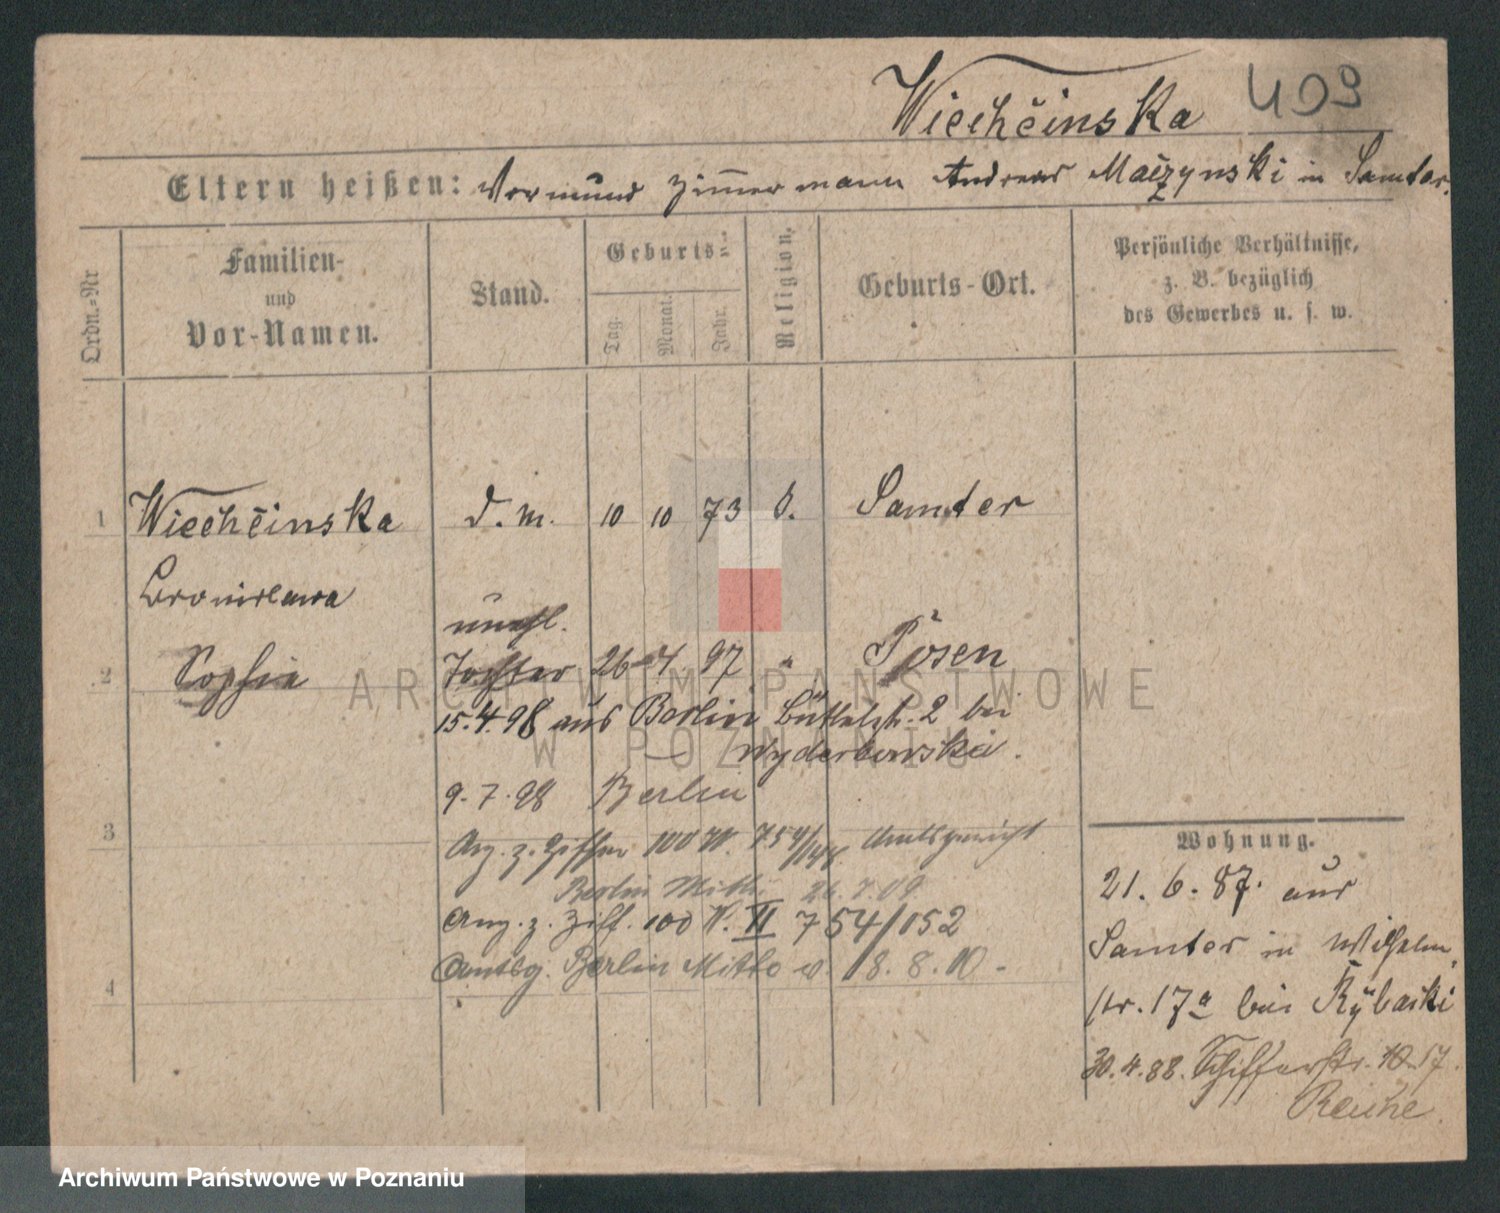 409
Wiechcinska
Eltern heißen: Vormund Zimmermann Andreas Maczynski in Samter.
Ordn.-Nr
Familien-
und
Vor-Namen.
Stand.
Geburts-
Tag.
Monat.
Jahr.
Religion.
Geburts-Ort.
Persönliche Verhältnisse,
z. B. bezüglich
des Gewerbes u. s. w.
1 Wiechcinska d. m. 10 10 73 k. Samter
Bronislawa
unehl.
2 Sophia Tochter 26 4. 97 " Posen
15.4.98 aus Berlin 2 bei
9.7.98 Berlin
3
Anz. z. Ziffer 100 W. 754/148. Amtsgericht
Berlin Mitte 26.7.09
Anz. z. Ziff. 100 W. II 754/152
Amtsg. Berlin Mitte v. 18.8.10.
4
Wohnung.
21.6.87. aus
Samter in Wilhelm
str. 17a bei Rybacki
30.4.88. Schifferstr. 10 17
ARCHIWUM PAŃSTWOWE
W POZNANIU
Archiwum Państwowe w Poznaniu